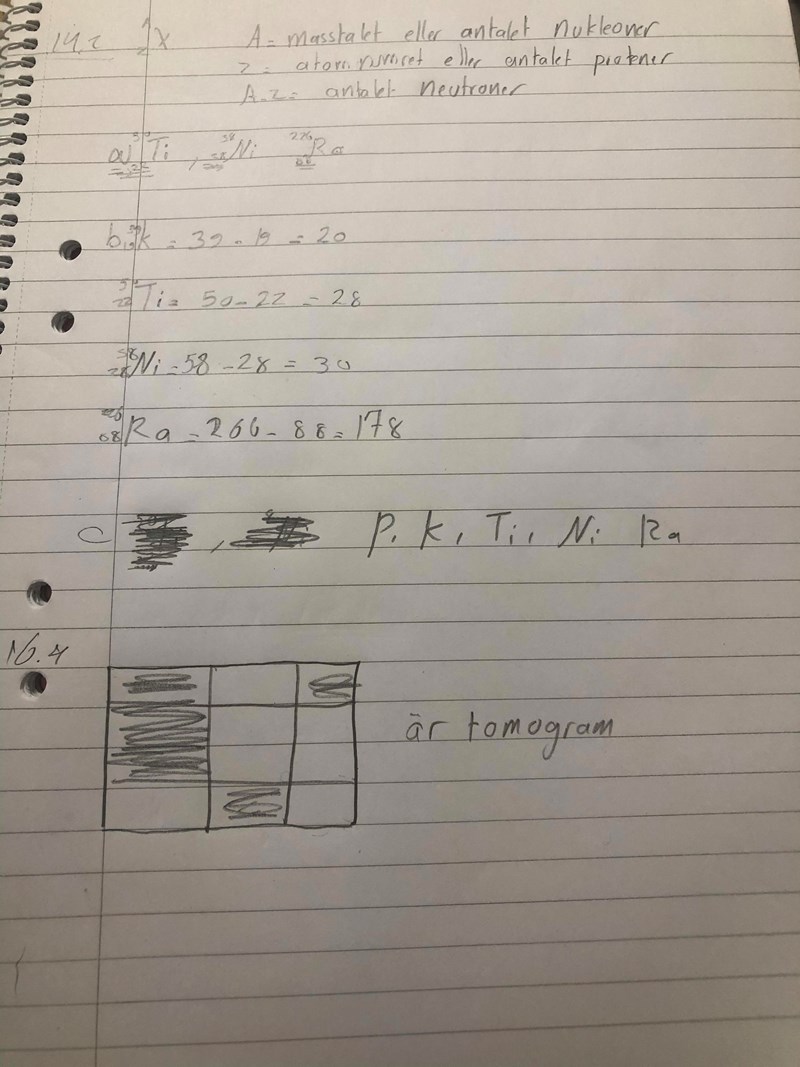 14.2 A Z X A = masstalet eller antalet nukleoner
Z = atom.numret eller antalet protener
A-Z = antalet neutroner
a) 50 22 Ti , 58 28 Ni 226 88 Ra
b) 39 19 k = 39 - 19 = 20
50 22 Ti = 50 - 22 = 28
58 28 Ni = 58 - 28 = 30
Ra = 266 - 88 = 178
C , P. k, Ti, Ni Ra
16.4
är tomogram